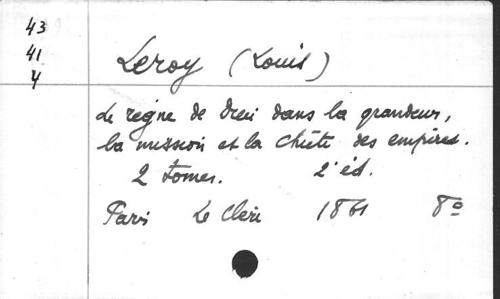 43
41
4
Leroy (Louis)
Le règne de Dieu dans la grandeur,
la mission et la chûte des empires.
2 tomes. 2e éd.
Paris Le Clère 1861 8º